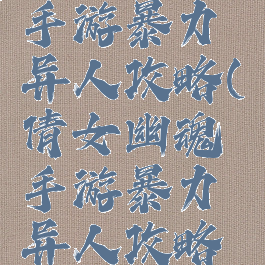 手游暴力
异人攻略(
倩女幽魂
手游暴力
异人攻略